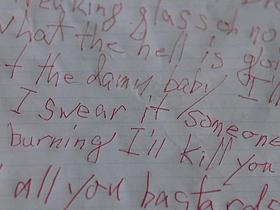 eaking glass oh no
what the hell is goin
t the damn baby I'll
I swear if someone
burning I'll kill you
all you bastards